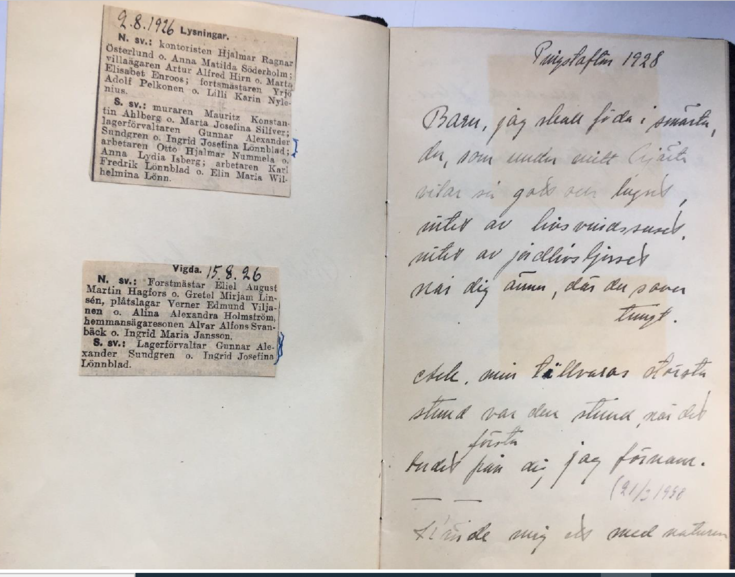 2.8.1926 Lysningar.
N. sv.: kontoristen Hjalmar Ragnar
Österlund o. Anna Matilda Söderholm;
villaägaren Artur Alfred Hirn o. Marta
Elisabet Enroos; forstmästaren Yrjö
Adolf Pelkonen o. Lilli Karin Nyle-
nius.
S. sv.: muraren Mauritz Konstan-
tin Ahlberg o. Marta Josefina Silfver;
lagerförvaltaren Gunnar Alexander
Sundgren o. Ingrid Josefina Lönnblad;
arbetaren Otto Hjalmar Nummela o.
Anna Lydia Isberg; arbetaren Karl
Fredrik Lönnblad o. Elin Maria Wil-
helmina Lönn.
Vigda. 15.8.26
N. sv.: Forstmästar Eliel August
Martin Hagfors o. Gretel Mirjam Lin-
sén, plåtslagar Verner Edmund Vilja-
nen o. Alina Alexandra Holmström,
hemmansägaresonen Alvar Alfons Svan-
bäck o. Ingrid Maria Jansson.
S. sv.: Lagerförvaltar Gunnar Ale-
xander Sundgren o. Ingrid Josefina
Lönnblad.
Pingstafton 1928
Barn, jag skall föda i smärta,
du, som under mitt hjärta
vilar så gott och lugnt,
intet av livsvindssuset,
intet av jordlivsljuset
når dig ännu, där du sover
tungt.
och, min tillvaros största
stund var den stund, när det
första
budet från dig jag förnam.
(21/2 1928
Kände mig ett med naturen